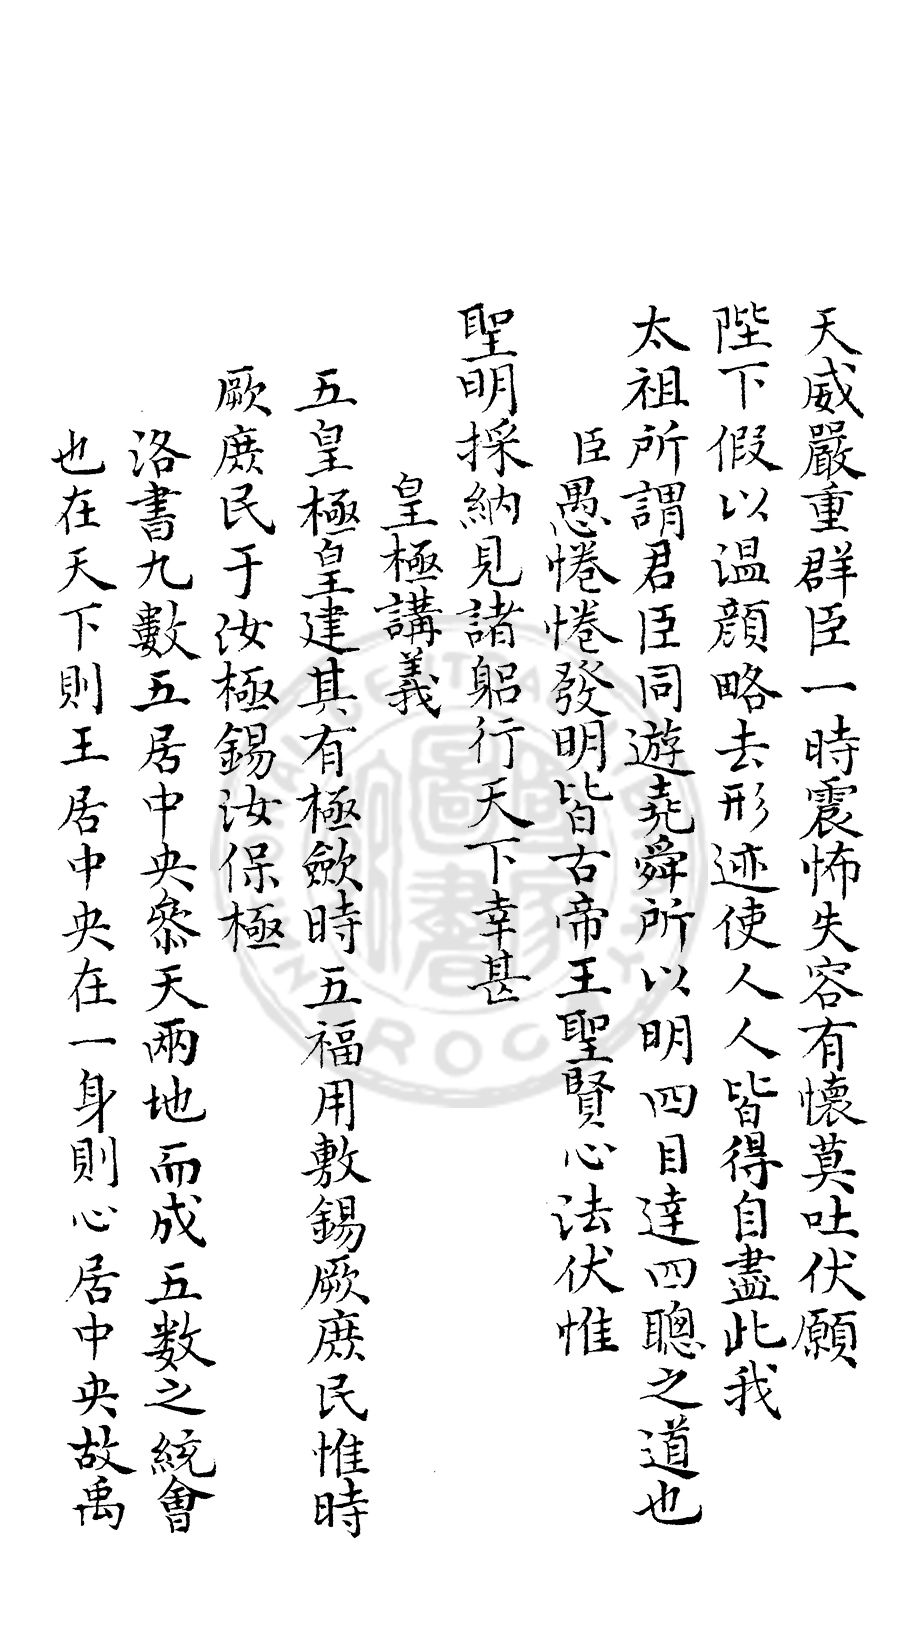 天威嚴重群臣一時震怖失容有懷莫吐伏願
陛下假以温顔略去形迹使人人皆得自盡此我
太祖所謂君臣同遊堯舜所以明四目達四聰之道也
臣愚惓惓發明皆古帝王聖賢心法伏惟
聖明採納見諸躬行天下幸甚
皇極講義
五皇極皇建其有極歛時五福用敷錫厥庶民惟時
厥庶民于汝極錫汝保極
洛書九數五居中央叅天兩地而成五数之統會
也在天下則王居中央在一身則心居中央故禹